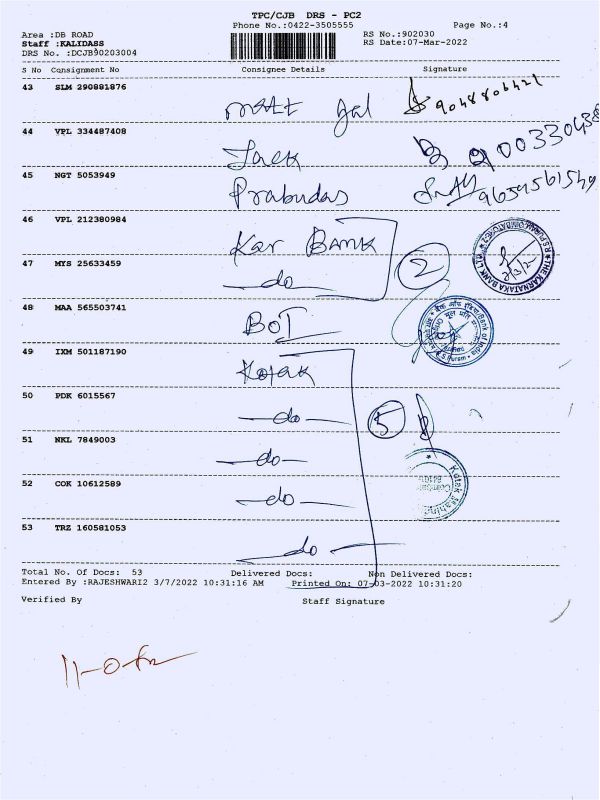 TPC/CJB DRS - PC2
Phone No.:0422-3505555
Page No.:4
Area :DB ROAD
RS No.:902030
Staff :KALIDASS
RS Date:07-Mar-2022
DRS No. :DCJB90203004
S No Consignment No Consignee Details Signature
43 SLM 290881876
44 VPL 334487408
Jack
45 NGT 5053949
Prabudas
46 VPL 212380984
Kar BANK
47 MYS 25633459
do
2
48 MAA 565503741
BOI
49 IXM 501187190
Kotak
50 PDK 6015567
do
5
51 NKL 7849003
do
52 COK 10612589
do
53 TRZ 160581053
do
Total No. Of Docs: 53 Delivered Docs: Non Delivered Docs:
Entered By :RAJESHWARI2 3/7/2022 10:31:16 AM Printed On: 07-03-2022 10:31:20
Verified By Staff Signature